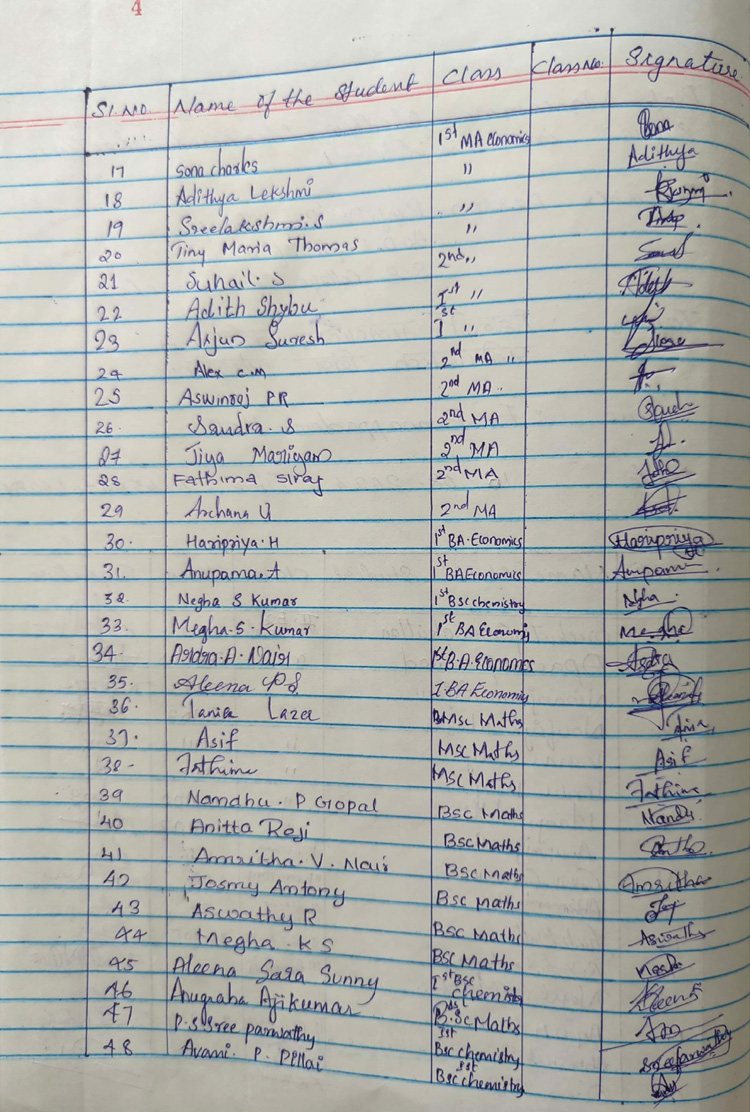 4
Sl.No Name of the Student Class Class No. Signature
17 Sona charles 1st MA Economics Sona
18 Adithya Lekshmi " Adithya
19 Sreelakshmi.S "
20 Tiny Maria Thomas "
21 Suhail.S 2nd "
22 Adith Shybu Ist " Adith
23 Arjun Suresh Ist "
24 Alex C.M 2nd MA "
25 Aswinraj PR 2nd MA "
26. Sandra.S 2nd MA Sandra
27 Jiya Mariyam 2nd MA
28 Fathima Siraj 2nd MA
29 Archana U 2nd MA
30. Haripriya.H 1st BA.Economics Haripriya
31. Anupama.A 1st BA Economics Anupama
32. Negha S Kumar 1st BSc chemistry Negha
33. Megha.S.Kumar 1st BA Economics Megha
34. Ardra.A.Nair 1st B.A.Economics Ardra
35. Aleena P S I BA Economics
36. Tania Lazer Msc Maths Tania
37. Asif Msc Maths Asif
38- Fathima Msc Maths Fathima
39 Namdhu.P Gopal Bsc Maths Nandu
40 Anitta Reji Bsc Maths
41 Amritha.V.Nair Bsc Maths Amritha
42 Josmy Antony Bsc Maths
43 Aswathy R Bsc Maths Aswathy
44 Megha.K S Bsc Maths Megha
45 Aleena Sara Sunny 1st Bsc chemistry Aleena
46 Anugraha Ajikumar B.Sc Maths
47 P.S Sree parvathy Ist Bsc chemistry Sreeparvathy
48 Avani.P.Pillai Ist Bsc chemistry